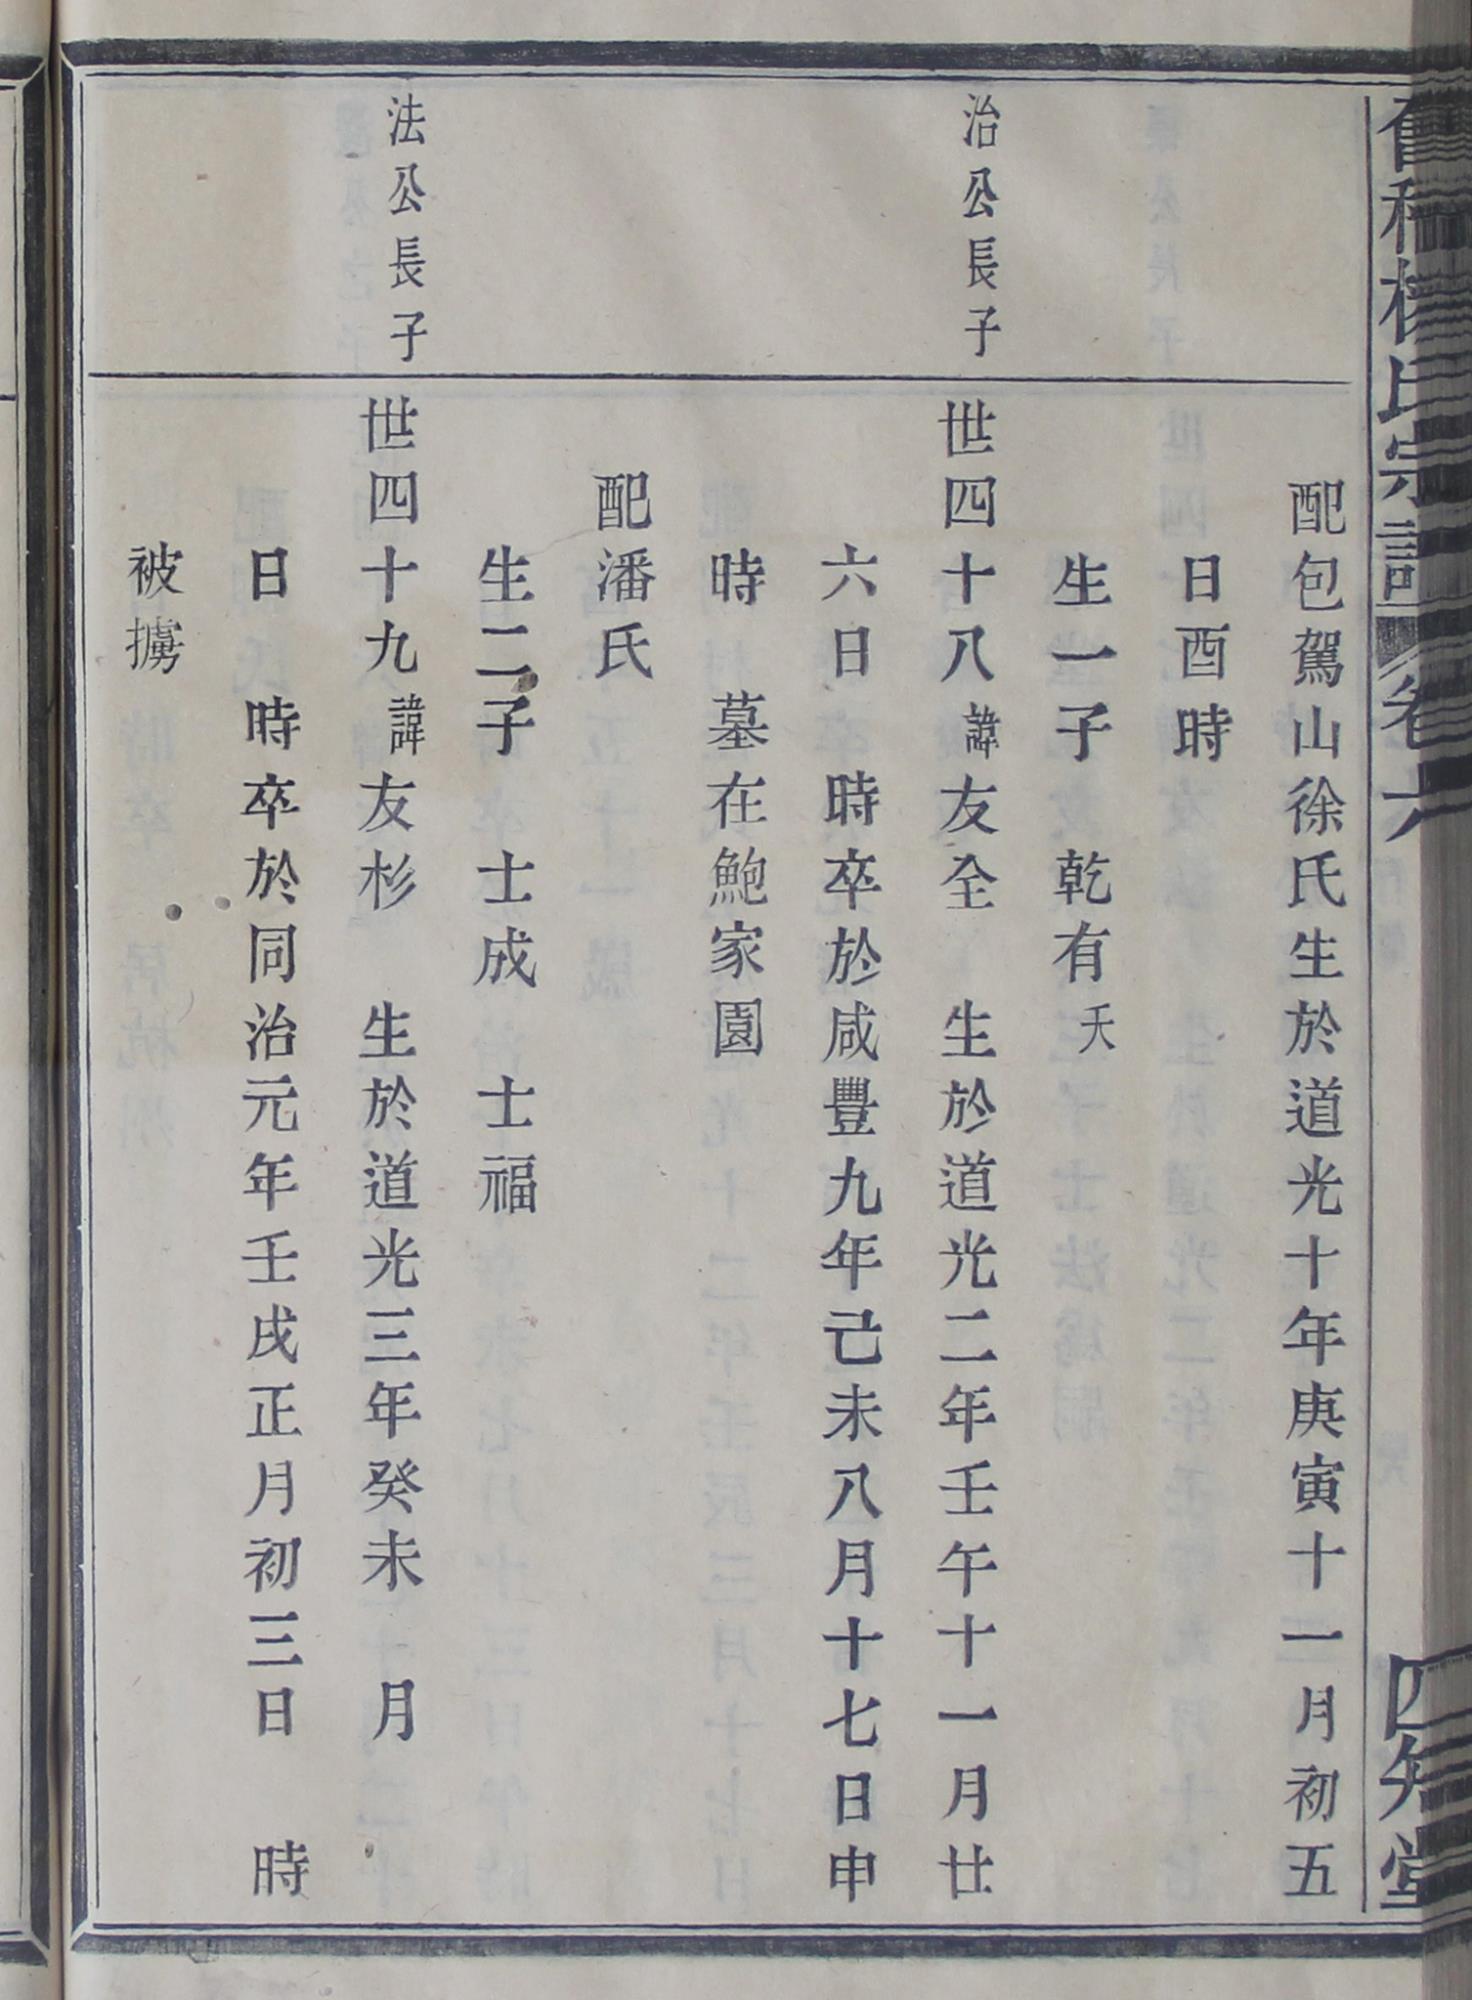 氏宗譜 卷六 四知堂
配包駕山徐氏生於道光十年庚寅十一月初五
日酉時
生一子 乾有夭
治公長子
世四十八諱友全 生於道光二年壬午十一月廿
六日 時卒於咸豐九年己未八月十七日申
時 墓在鮑家園
配潘氏
生二子 士成 士福
法公長子
世四十九諱友杉 生於道光三年癸未 月
日 時卒於同治元年壬戌正月初三日 時
被擄